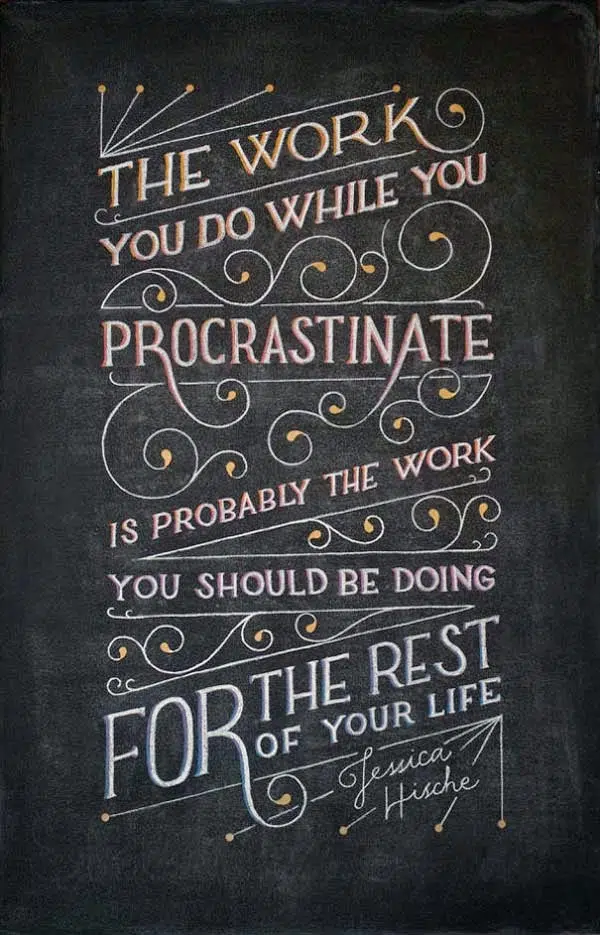 THE WORK
YOU DO WHILE YOU
PROCRASTINATE
IS PROBABLY THE WORK
YOU SHOULD BE DOING
FOR THE REST
OF YOUR LIFE
Jessica
Hische